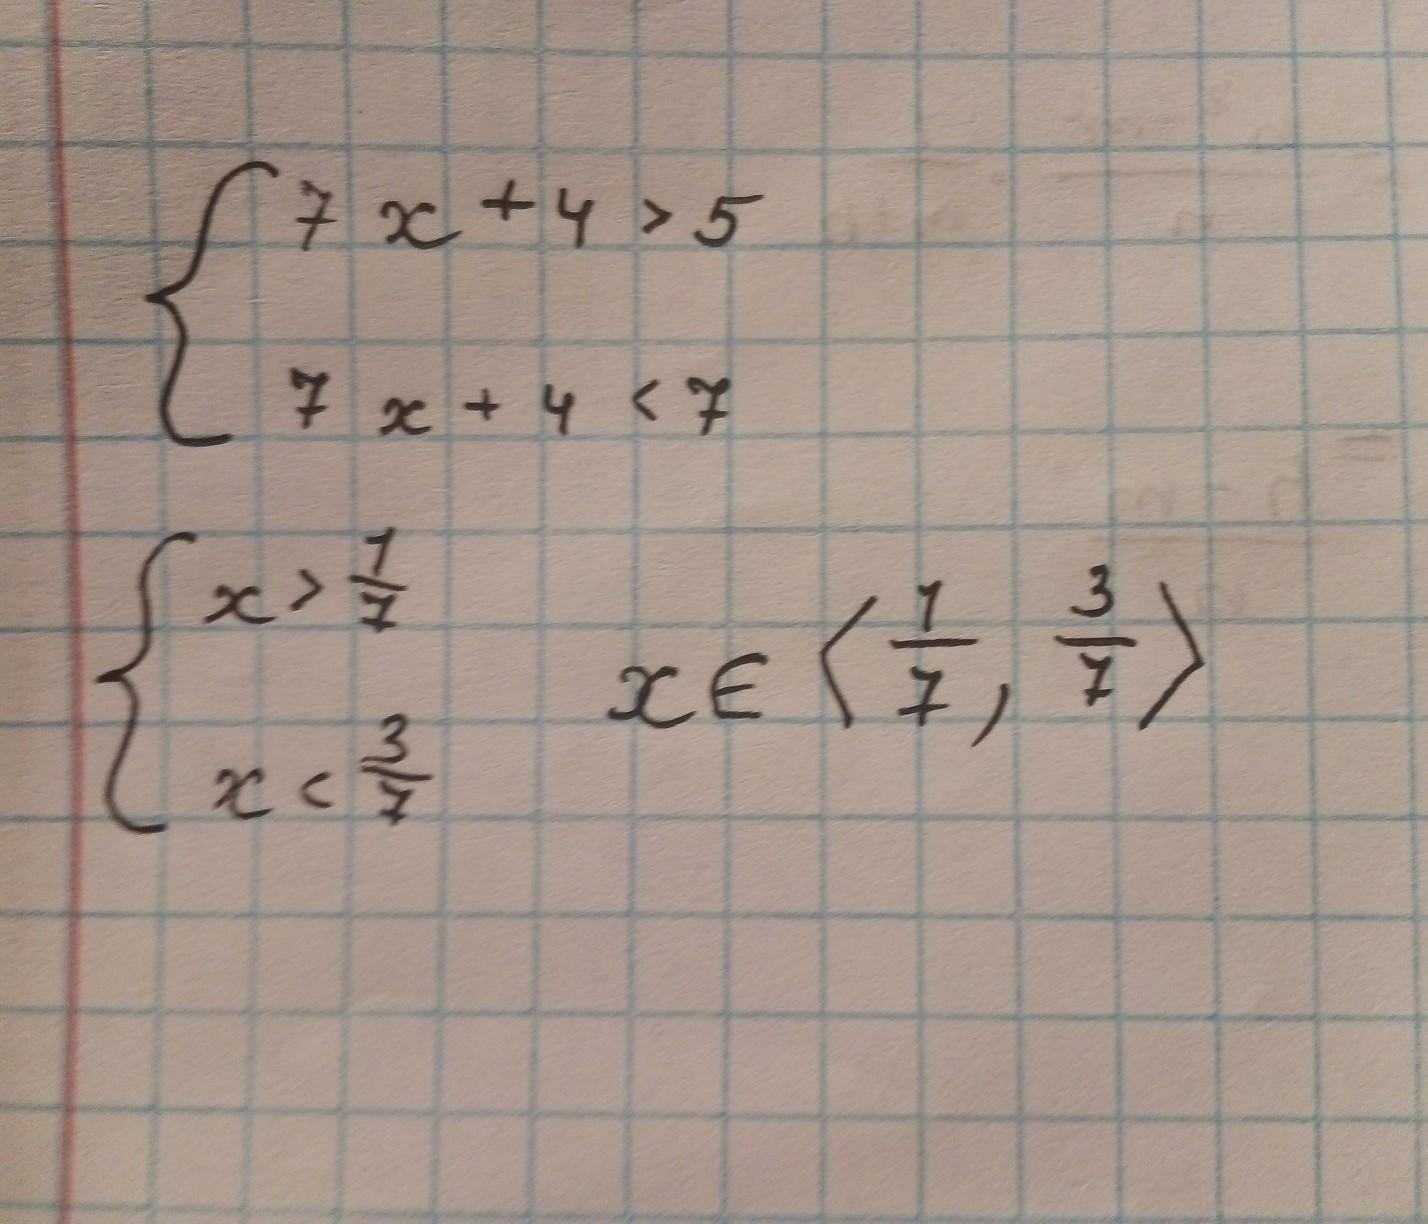 7x + 4 > 5
7x + 4 < 7
x > 1/7
x < 3/7
x ∈ ⟨1/7, 3/7⟩